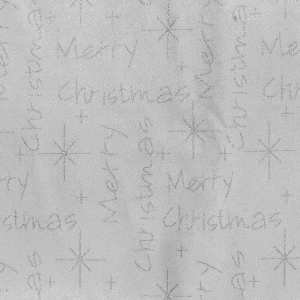 Merry
Christmas
Merry
Christmas
Merry
Christmas
Merry
Christmas
Merry
Christmas